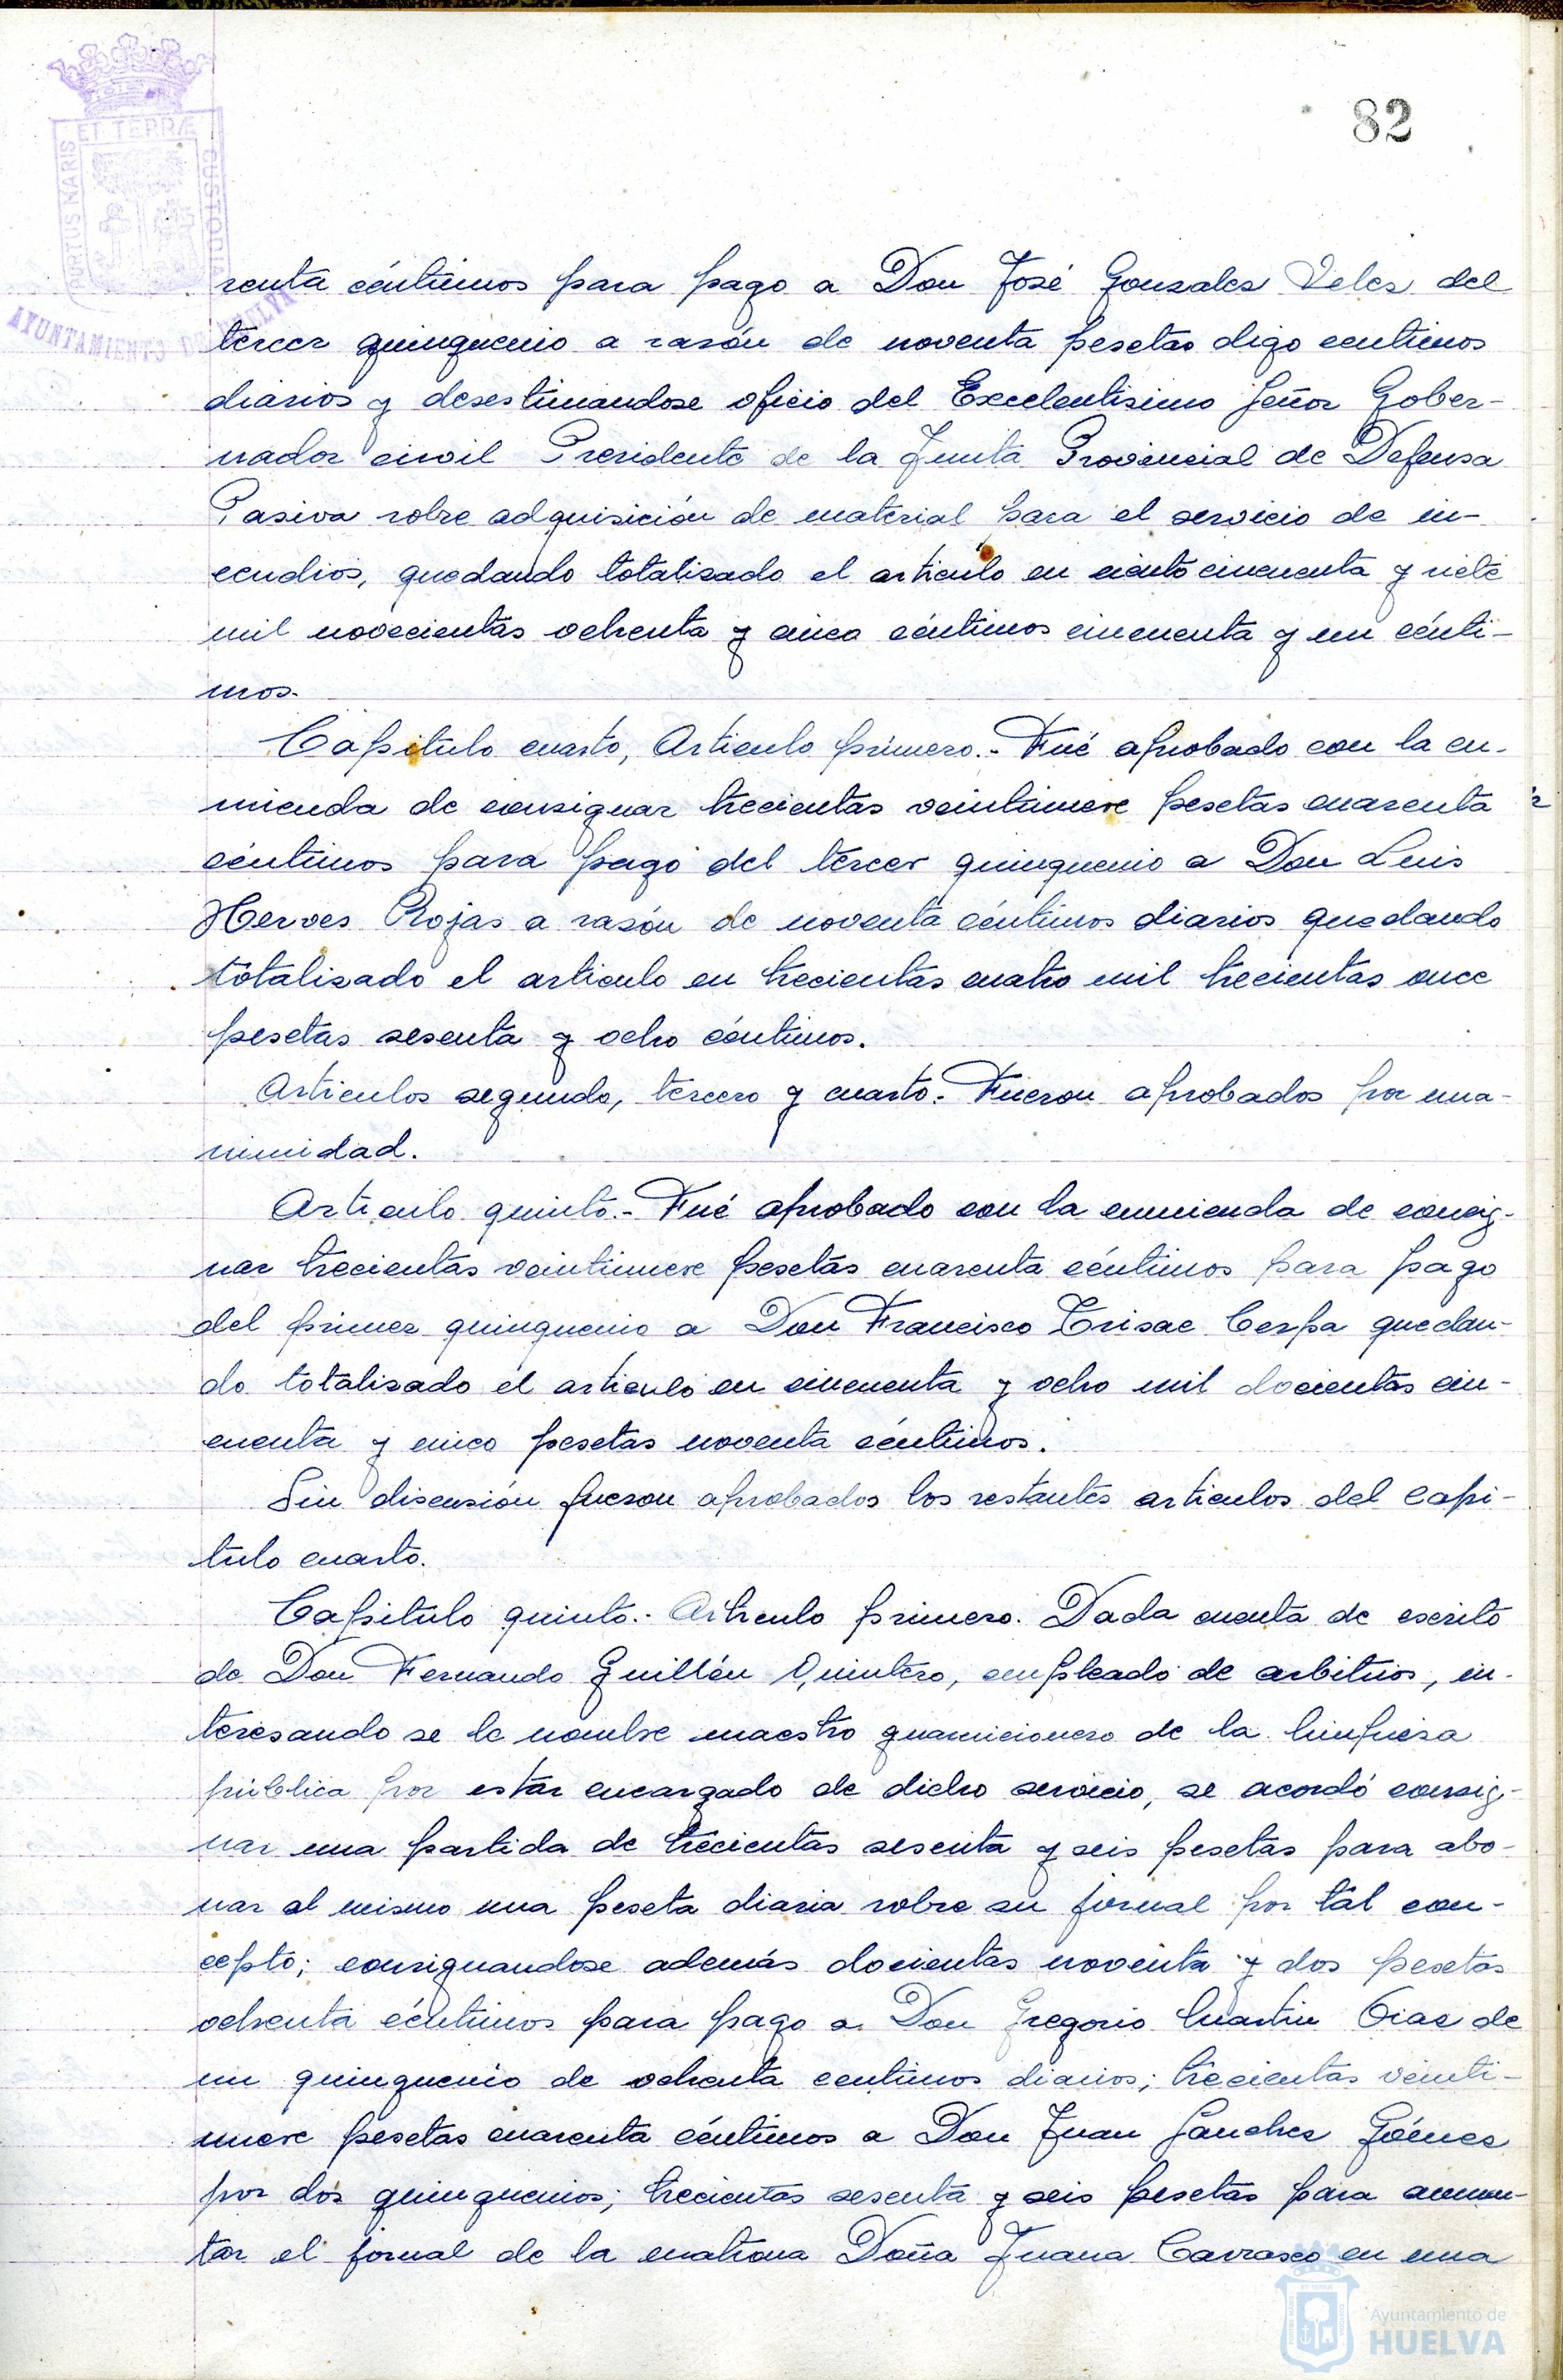 82
PORTUS MARIS ET TERRÆ CUSTODIA
AYUNTAMIENTO DE HUELVA
renta céntimos para pago a Don José Gonzales Veles del
tercer quinquenio a razón de noventa pesetas digo centimos
diarios y desestimandose oficio del Excelentisimo Señor Gober-
nador civil Presidente de la Junta Provincial de Defensa
Pasiva sobre adquisición de material para el servicio de in-
cendios, quedando totalizado el articulo en ciento cincuenta y siete
mil novecientas ochenta y cinco céntimos cincuenta y un cénti-
mos.
Capitulo cuarto, Articulo primero.- Fué aprobado con la en-
mienda de consignar trecientas veintinueve pesetas cuarenta
céntimos para pago del tercer quinquenio a Don Luis
Herves Rojas a razón de noventa céntimos diarios quedando
totalizado el articulo en trecientas cuatro mil trecientas once
pesetas sesenta y ocho céntimos.
Articulos segundo, tercero y cuarto.- Fueron aprobados por una-
nimidad.
Articulo quinto.- Fué aprobado con la enmienda de consig-
nar trecientas veintinueve pesetas cuarenta céntimos para pago
del primer quinquenio a Don Francisco Trisac Cerpa quedan-
do totalizado el articulo en cincuenta y ocho mil docientas cin-
cuenta y cinco pesetas noventa céntimos.
Sin discusión fueron aprobados los restantes articulos del Capi-
tulo cuarto.
Capitulo quinto.- Articulo primero. Dada cuenta de escrito
de Don Fernando Guillén Quintero, empleado de arbitrios, in-
teresando se le nombre maestro guarnicionero de la limpieza
pública por estar encargado de dicho servicio, se acordó consig-
nar una partida de trecientas sesenta y seis pesetas para abo-
nar al mismo una peseta diaria sobre su jornal por tál con-
cepto; consignandose además docientas noventa y dos pesetas
ochenta céntimos para pago a Don Gregorio Martin Orae de
un quinquenio de ochenta centimos diarios; trecientas veinti-
nueve pesetas cuarenta céntimos a Don Juan Sanches Gómes
por dos quinquenios; trecientas sesenta y seis pesetas para aumen-
tar el jornal de la matrona Doña Juana Carrasco en una
Ayuntamiento de
HUELVA